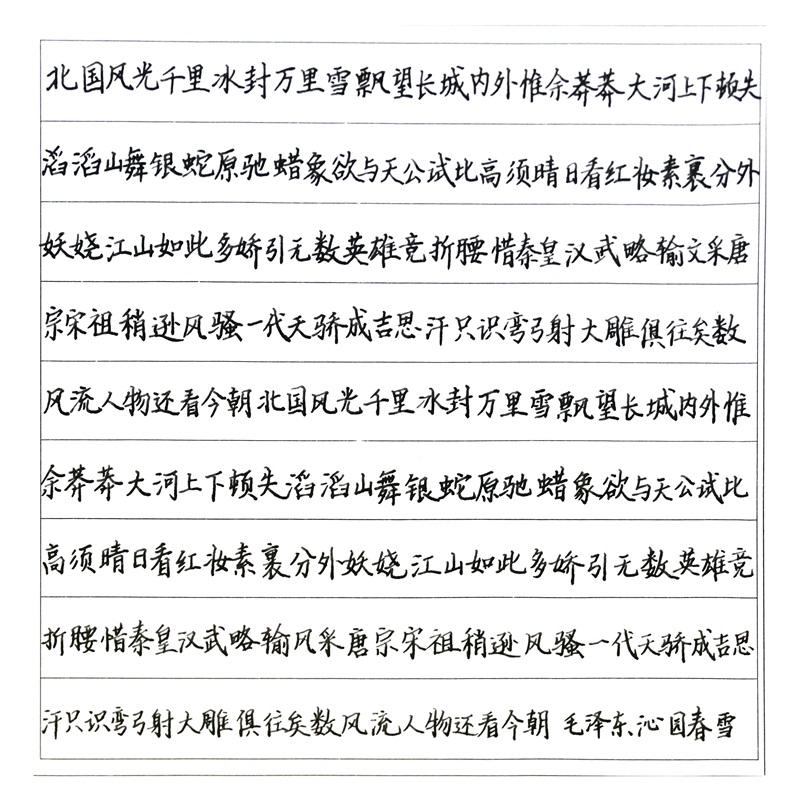 北国风光千里冰封万里雪飘望长城内外惟余莽莽大河上下顿失
滔滔山舞银蛇原驰蜡象欲与天公试比高须晴日看红妆素裹分外
妖娆江山如此多娇引无数英雄竞折腰惜秦皇汉武略输文采唐
宗宋祖稍逊风骚一代天骄成吉思汗只识弯弓射大雕俱往矣数
风流人物还看今朝北国风光千里冰封万里雪飘望长城内外惟
余莽莽大河上下顿失滔滔山舞银蛇原驰蜡象欲与天公试比
高须晴日看红妆素裹分外妖娆江山如此多娇引无数英雄竞
折腰惜秦皇汉武略输风采唐宗宋祖稍逊风骚一代天骄成吉思
汗只识弯弓射大雕俱往矣数风流人物还看今朝 毛泽东沁园春雪